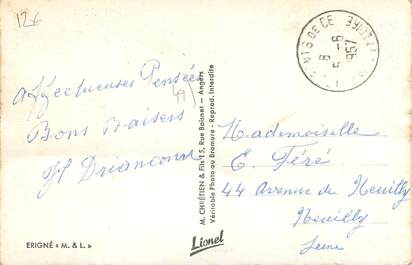 12€
NTS DE CE
8-6
1957
Affectueuses Pensées
Bons Baisers
Driancourt
M. CHRÉTIEN & Fils 15, Rue Boisnet — Angers
Véritable Photo au Bromure - Reprod. Interdite
Mademoiselle
E. Féré
44 Avenue de Neuilly
Neuilly
Seine
ERIGNÉ « M. & L. »
Lionel